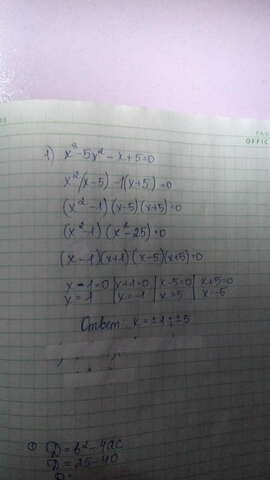 OFFIC
1) x³-5x²-x+5=0
x²(x-5)-1(x+5)=0
(x²-1)(x-5)(x+5)=0
(x²-1)(x²-25)=0
(x-1)(x+1)(x-5)(x+5)=0
x-1=0 | x+1=0 | x-5=0 | x+5=0
x=1 | x=-1 | x=5 | x=-5
Ответ: x=±1; ±5
① D=b²-4ac
D=25-40